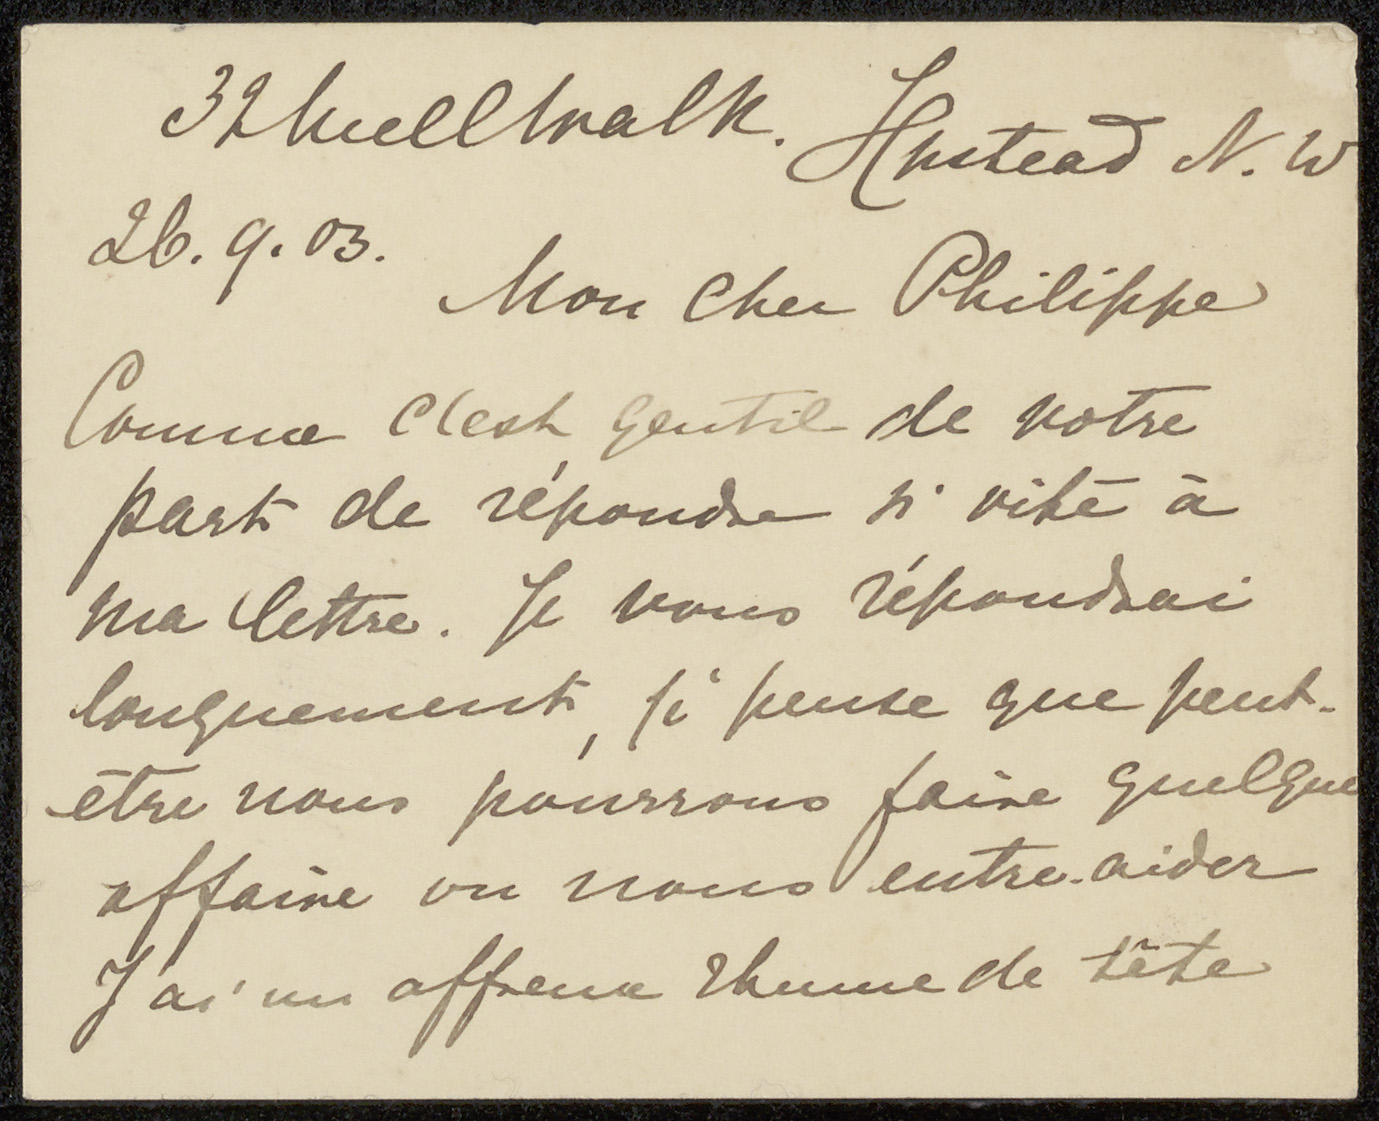 32 Well Walk. Hpstead N. W
26. 9. 03.
Mon cher Philippe
Comme c'est gentil de votre
part de répondre si vite à
ma lettre. Je vous répondrai
longuement, je pense que peut-
être nous pourrons faire quelque
affaire ou nous entre-aider
J'ai un affreux rhume de tête